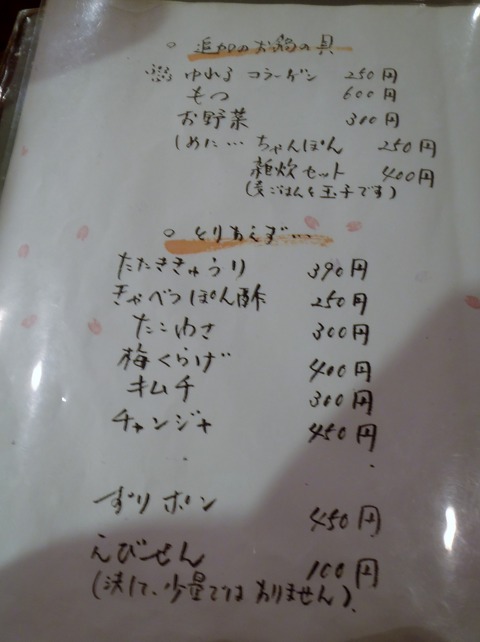 ○ 追加のお鍋の具
ゆれる コラーゲン 250円
もつ 600円
お野菜 300円
しめに… ちゃんぽん 250円
雑炊セット 400円
ごはんと玉子です)
○ とりあえず…
たたききゅうり 390円
きゃべつぽん酢 250円
たこわさ 300円
梅くらげ 400円
キムチ 300円
チャンジャ 450円
ずりポン 450円
えびせん 100円
(決して、少量ではありません)